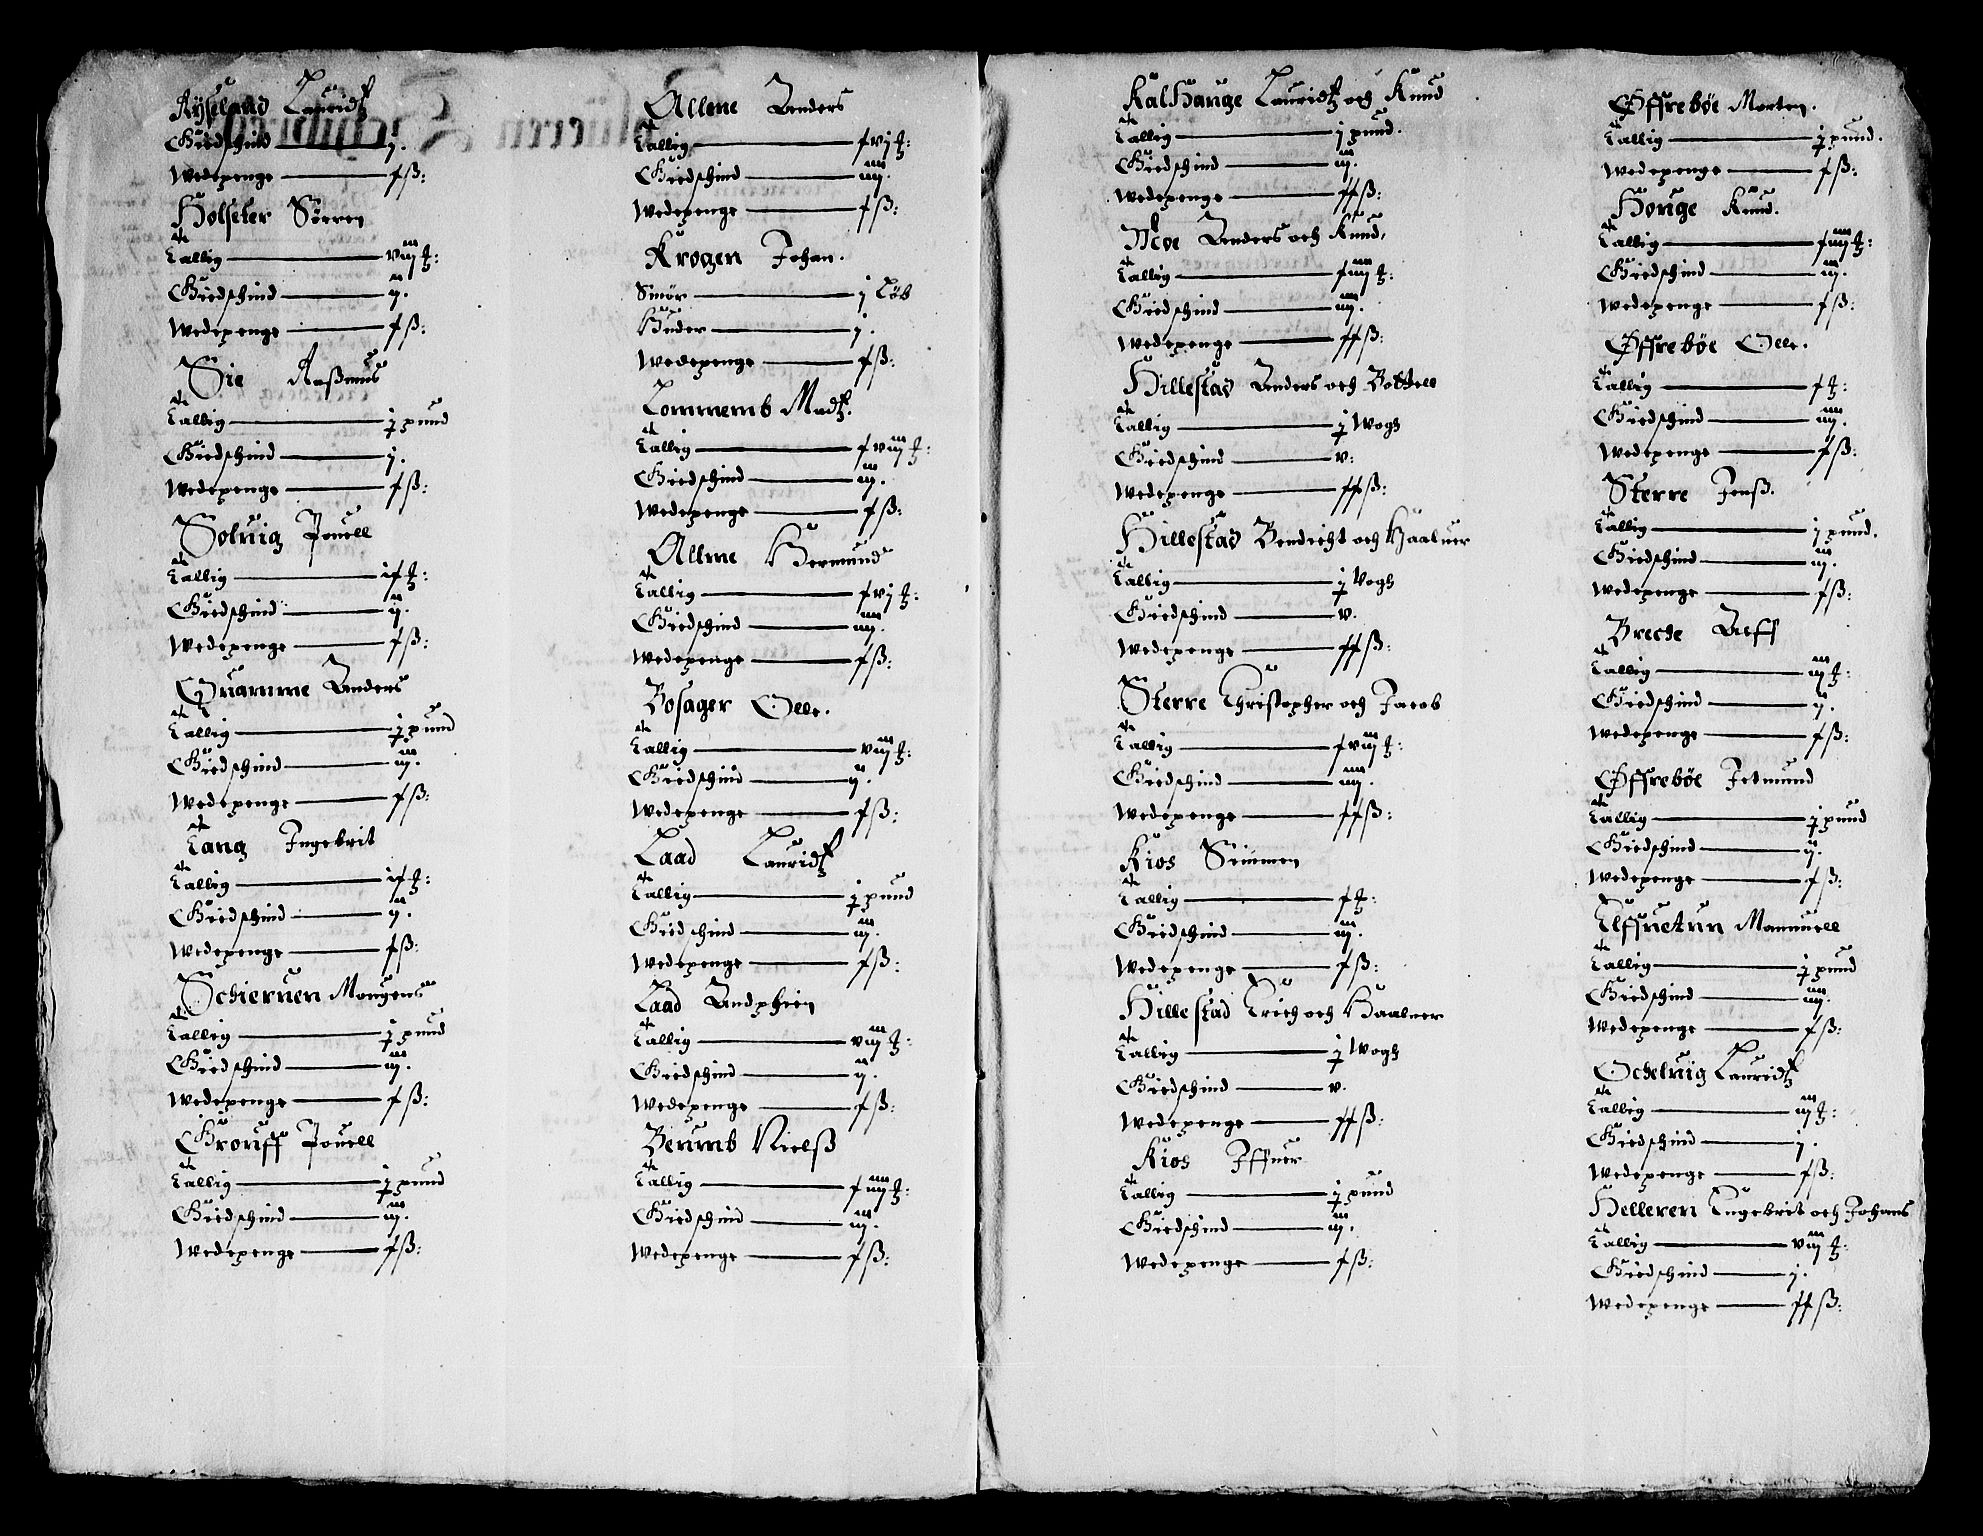 Ayseland Lauridtz
Giedschind — j.
Wedepenge — f ß:
Holseter Sörren
Tallig — viij ₰:
Giedschind — ij.
Wedepenge — f ß:
Sie Rasmus
Tallig — j pund
Giedschind — j.
Wedepenge — f ß:
Soluig Pouell
Tallig — if ₰:
Giedschind — ij.
Wedepenge — f ß:
Quamme Anders
Tallig — j pund
Giedschind — iij.
Wedepenge — f ß:
Tang Ingebrit
Tallig — if ₰:
Giedschind — ij.
Wedepenge — f ß:
Schieruen Mougens
Tallig — j pund
Giedschind — iij.
Wedepenge — f ß:
Grouff Pouell
Tallig — j pund
Giedschind — iij.
Wedepenge — f ß:
Allme Anders
Tallig — fvj ₰:
Giedschind — iiij.
Wedepenge — f ß:
Krogen Johan.
Smör — j Löb
Huder — j.
Wedepenge — f ß:
Lommemb Madtz.
Tallig — fviij ₰:
Giedschind — iij.
Wedepenge — f ß:
Allme Germund
Tallig — fvj ₰:
Giedschind — iiij.
Wedepenge — f ß:
Bosager Olle.
Tallig — viij ₰:
Giedschind — ij.
Wedepenge — f ß:
Laad Lauridtz
Tallig — j pund
Giedschind — iij.
Wedepenge — f ß:
Laad Andphin
Tallig — viij ₰:
Giedschind — ij.
Wedepenge — f ß:
Beumb Nielß
Tallig — fiiij ₰:
Giedschind — iij.
Wedepenge — f ß:
Kalhauge Lauridtz och Knud
Tallig — j pund.
Giedschind — iij.
Wedepenge — ff ß:
Moe Anders och Knud,
Tallig — fiiij ₰:
Giedschind — iiij.
Wedepenge — ff ß:
Hillestad Anders och Bottell
Tallig — j Wogh
Giedschind — v.
Wedepenge — ff ß:
Hillestad Bendicht och Haaluer
Tallig — j Vogh
Giedschind — v.
Wedepenge — ff ß:
Sterre Christopher och Jacob
Tallig — fviij ₰:
Giedschind — iiij.
Wedepenge — ff ß:
Kios Simmen
Tallig — f ₰:
Giedschind — iij.
Wedepenge — f ß:
Hillestad Erich och Haaluer
Tallig — j Wogh
Giedschind — v.
Wedepenge — ff ß:
Kios Iffuer
Tallig — j pund
Giedschind — iij.
Wedepenge — f ß:
Øffrebøe Morten.
Tallig — j pund.
Wedepenge — f ß:
Houge Knud.
Tallig — fiiij ₰:
Giedschind — iij.
Wedepenge — f ß:
Øffrebøe Olle.
Tallig — f ₰:
Giedschind — iiij.
Wedepenge — f ß:
Sterre Jenß.
Tallig — j pund.
Giedschind — iij.
Wedepenge — f ß:
Brecke
Tallig — iiij ₰:
Giedschind — ij.
Wedepenge — f ß:
Øffrebøe Jetmund
Tallig — j pund
Giedschind — ij.
Wedepenge — f ß:
Elffuetun Mamuell
Tallig — j pund
Giedschind — iiij.
Wedepenge — f ß:
Ocheluig Lauridtz
Tallig — iij ₰:
Giedschind — j.
Wedepenge — f ß:
Helleren Engebrit och Johans
Tallig — viij ₰:
Giedschind — j.
Wedepenge — ff ß: